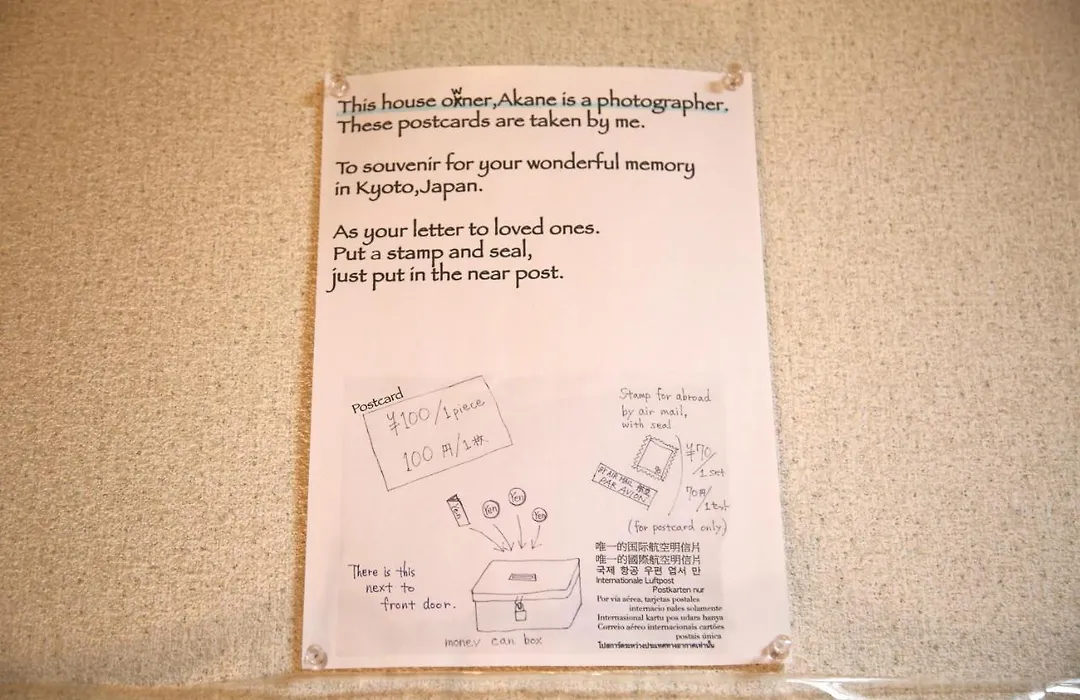 This house owner,Akane is a photographer.
These postcards are taken by me.
To souvenir for your wonderful memory
in Kyoto,Japan.
As your letter to loved ones.
Put a stamp and seal,
just put in the near post.
Postcard
¥100/1piece
100円/1枚
Stamp for abroad
by air mail,
with seal
¥70/
1set
70円/
1セット
BY AIR MAIL 航空
PAR AVION
(for postcard only)
Yen
Yen
Yen
Yen
There is this
next to
front door.
money can box
唯一的国际航空明信片
唯一的國際航空明信片
국제 항공 우편 엽서 만
Internationale Luftpost
Postkarten nur
Por vía aérea, tarjetas postales
internacio nales solamente
Internasional kartu pos udara hanya
Correio aéreo internacionais cartões
postais única
โปสการ์ดระหว่างประเทศทางอากาศเท่านั้น